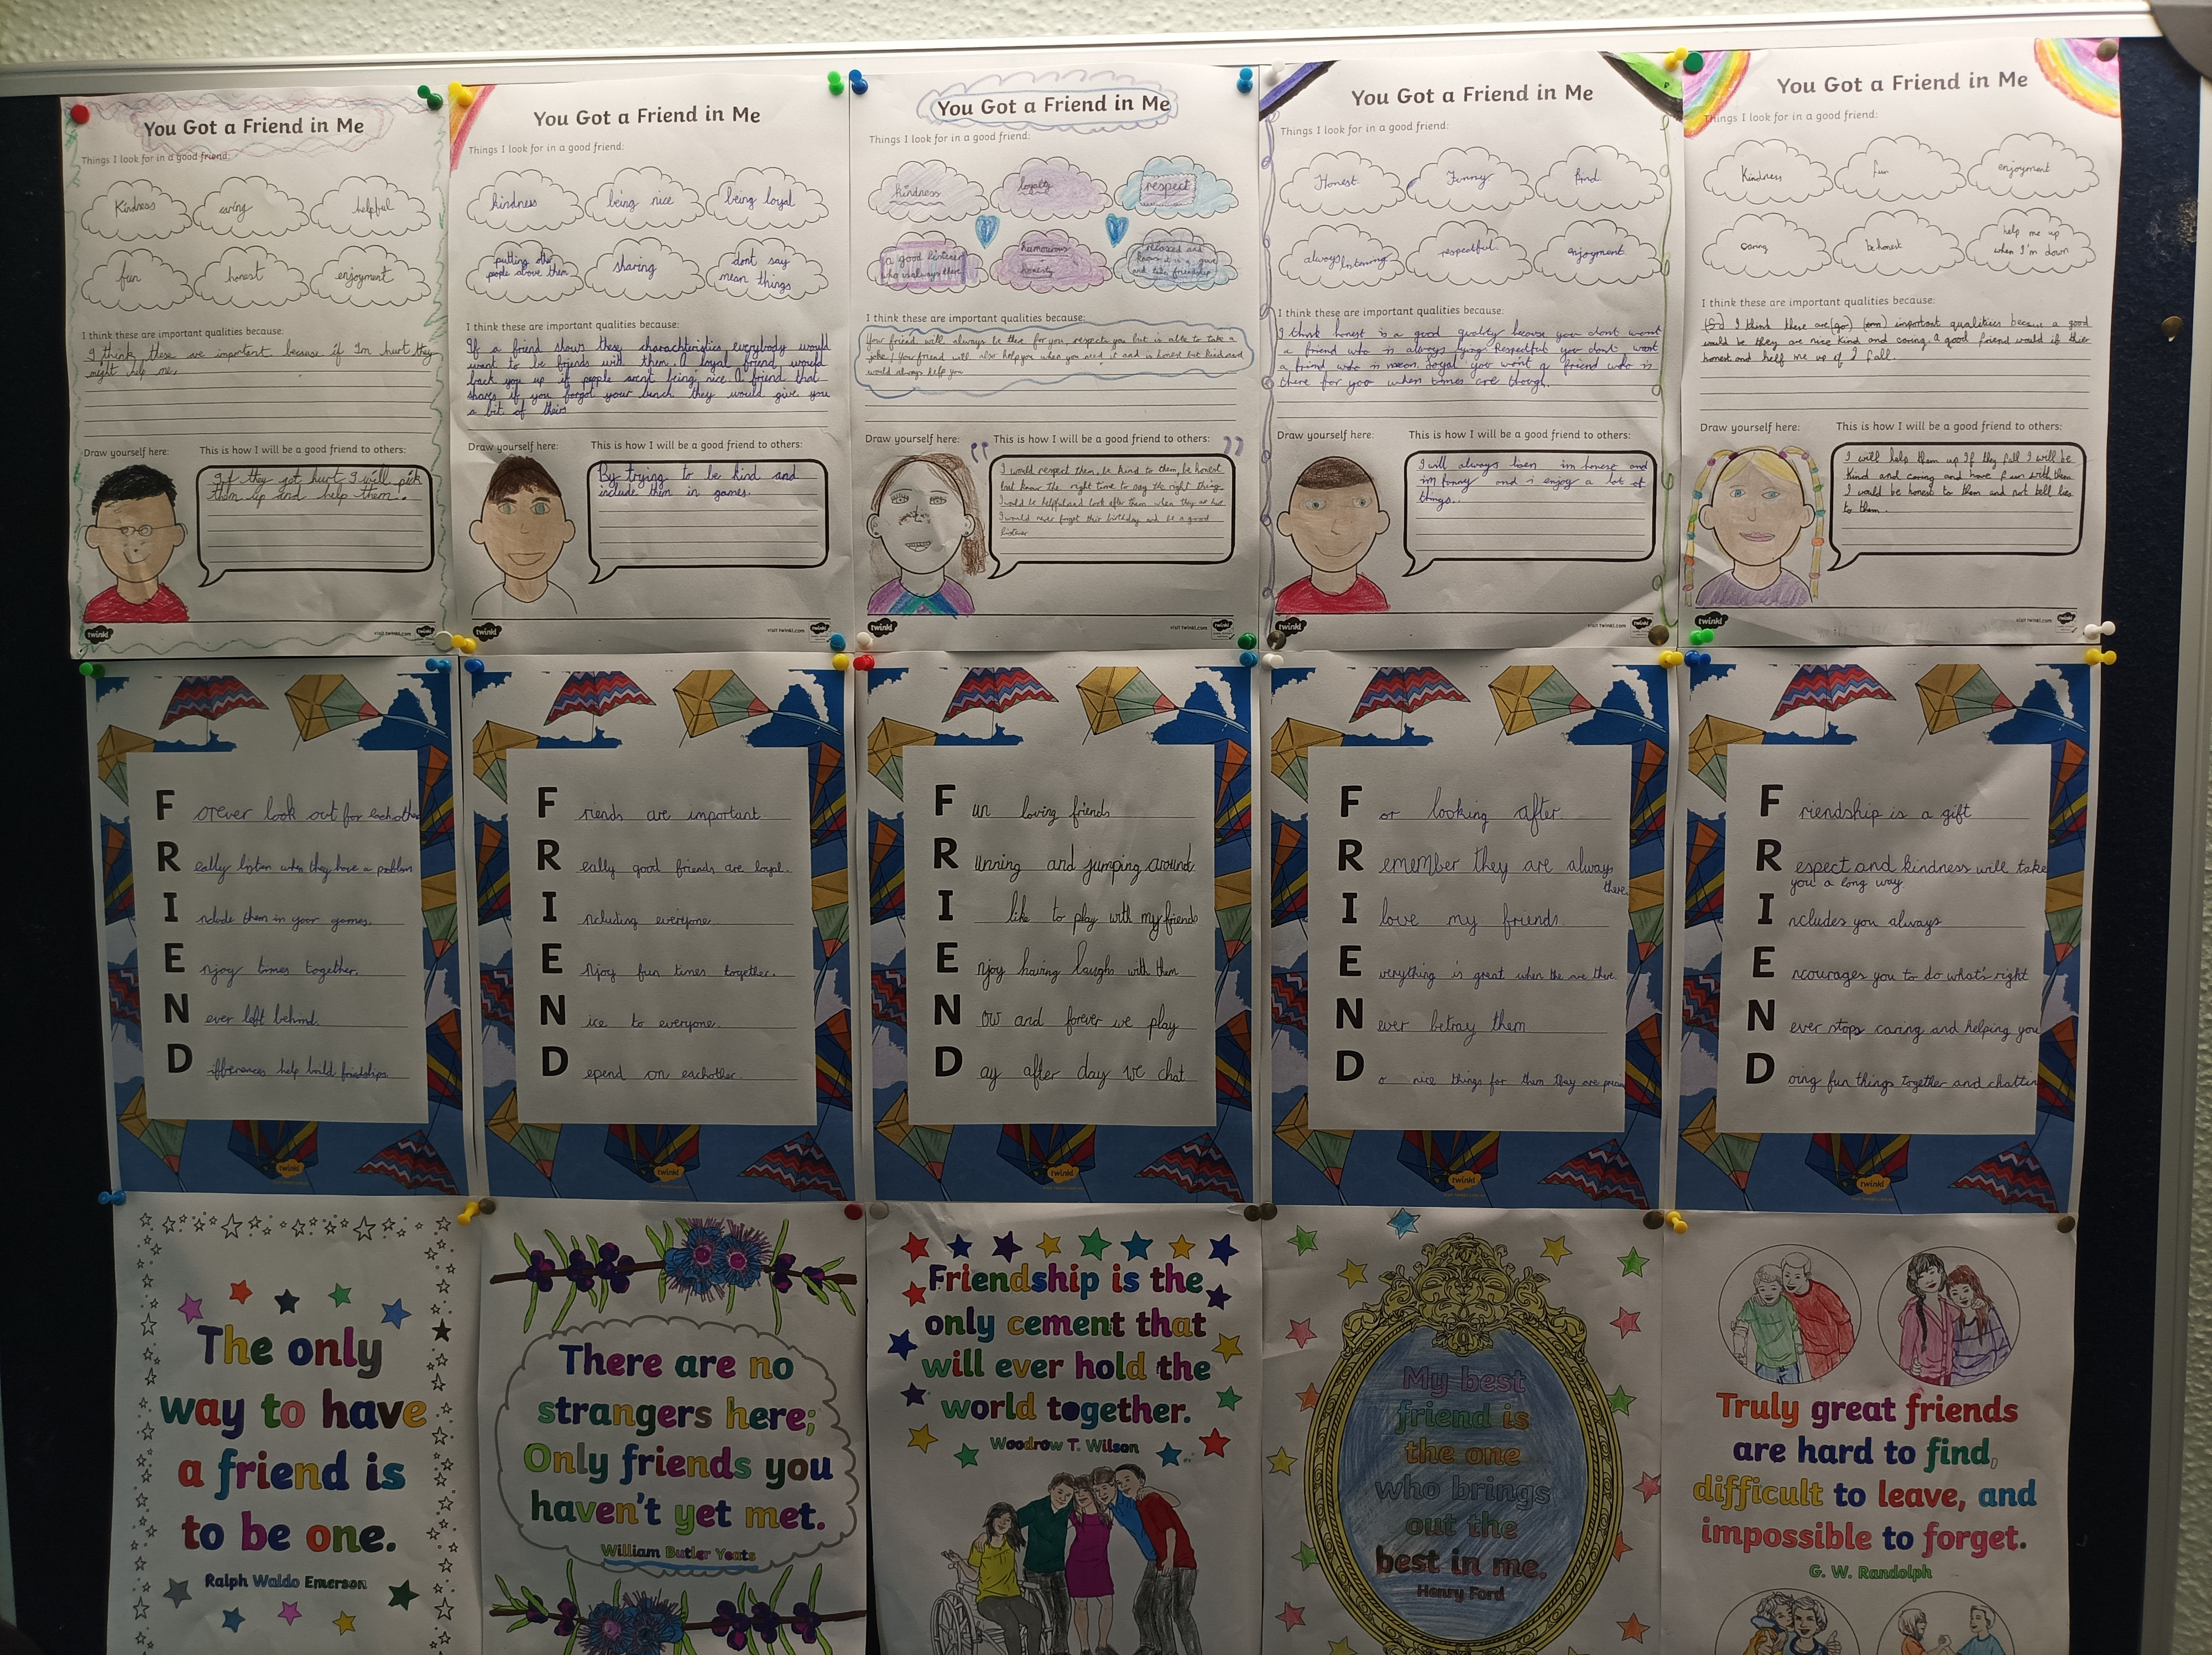 You Got a Friend in Me
Things I look for in a good friend:
Kindness
caring
helpful
fun
honest
enjoyment
I think these are important qualities because:
I think these are important because if I'm hurt they
might help me.
Draw yourself here:
This is how I will be a good friend to others:
If they get hurt I will pick
them up and help them.
twinkl
visit twinkl.com
You Got a Friend in Me
Things I look for in a good friend:
kindness
being nice
being loyal
putting other
people above them
sharing
dont say
mean things
I think these are important qualities because:
If a friend shows these charachteristics everybody would
want to be friends with them. A loyal friend would
back you up if people arent being nice. A friend that
shares if you forgot your lunch they would give you
a bit of theirs
Draw yourself here:
This is how I will be a good friend to others:
By trying to be kind and
include them in games.
twinkl
visit twinkl.com
You Got a Friend in Me
Things I look for in a good friend:
kindness
loyalty
respect
a good listener
who is always there
humourous
honesty
relaxed and
I think these are important qualities because:
Your friend will always be there for you, respects you but is able to take a
joke! Your friend will also help you when you need it and is honest but kind and
would always help you
Draw yourself here:
This is how I will be a good friend to others:
I would respect them, be kind to them, be honest
but know the right time to say the right thing.
I would be helpful and look after them when they are
I would never forget their birthday and be a good
listener
twinkl
visit twinkl.com
You Got a Friend in Me
Things I look for in a good friend:
Honest
Funny
kind
always listening
respectful
enjoyment
I think these are important qualities because:
I think honest is a good quality because you dont want
a friend who is always lying. Respectful you dont want
a friend who is mean. loyal you won't a friend who is
there for you when times are though.
Draw yourself here:
This is how I will be a good friend to others:
I will always lisen im honest and
im funny and i enjoy a lot of
things..
twinkl
visit twinkl.com
You Got a Friend in Me
Things I look for in a good friend:
Kindness
fun
enjoyment
caring
be honest
help me up
when I'm down
I think these are important qualities because:
I think these are important qualities a good
would be they are nice kind and caring. A good friend would if
honest and help me up if I fall.
Draw yourself here:
This is how I will be a good friend to others:
I will help them up if they fall I will be
kind and caring and have fun with them
I would be honest to them and not tell lies
to them.
twinkl
visit twinkl.com
Forever look out for eachother
Really listen when they have a problem
Include them in your games.
Enjoy times together.
Never left behind.
Differences help build friendships.
twinkl
Friends are important.
Really good friends are loyal.
Including everyone
Enjoy fun times together.
Nice to everyone.
Depend on eachother.
twinkl
Fun loving friends
Running and jumping around
I like to play with my friends
Enjoy having laughs with them
Now and forever we play
Day after day we chat
twinkl
For looking after
Remember they are always
there.
I love my friends
Everything is great when the are there.
Never betray them
Do nice things for them they are
twinkl
Friendship is a gift
Respect and kindness will take
you a long way.
Includes you always
Encourages you to do what's right
Never stops caring and helping you
Doing fun things together and chattin
twinkl
The only
way to have
a friend is
to be one.
Ralph Waldo Emerson
There are no
strangers here;
Only friends you
haven't yet met.
William Butler Yeats
Friendship is the
only cement that
will ever hold the
world together.
Woodrow T. Wilson
My best
friend is
the one
who brings
out the
best in me.
Henry Ford
Truly great friends
are hard to find,
difficult to leave, and
impossible to forget.
G. W. Randolph